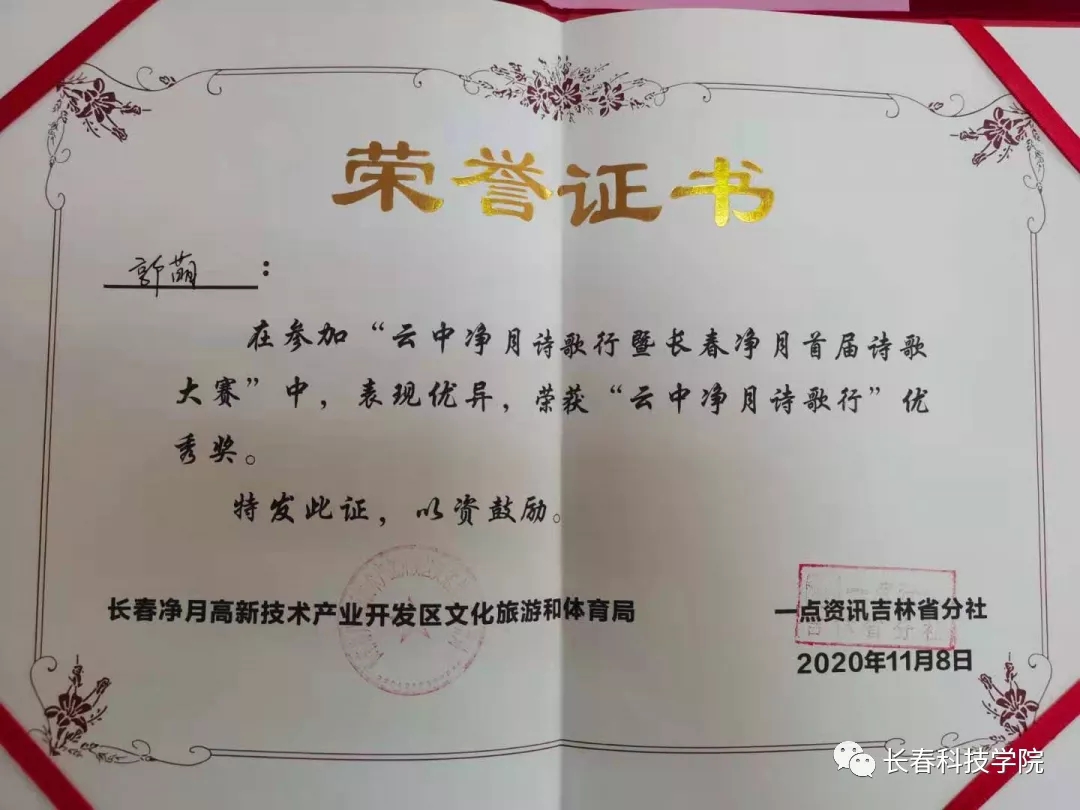 荣誉证书
郭萌：
在参加“云中净月诗歌行暨长春净月首届诗歌
大赛”中，表现优异，荣获“云中净月诗歌行”优
秀奖。
特发此证，以资鼓励。
长春净月高新技术产业开发区文化旅游和体育局
一点资讯吉林省分社
2020年11月8日
长春科技学院